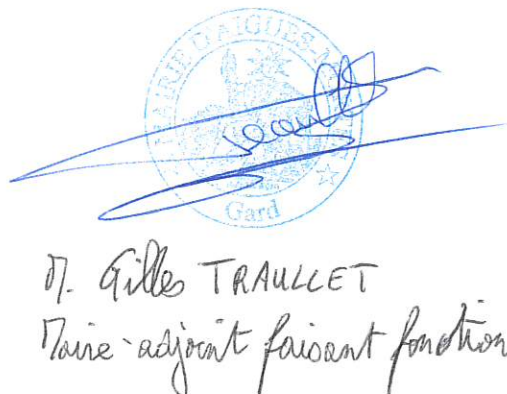 MAIRIE D'AIGUES-M
Gard
M. Gilles TRAULLET
Maire-adjoint faisant fonction